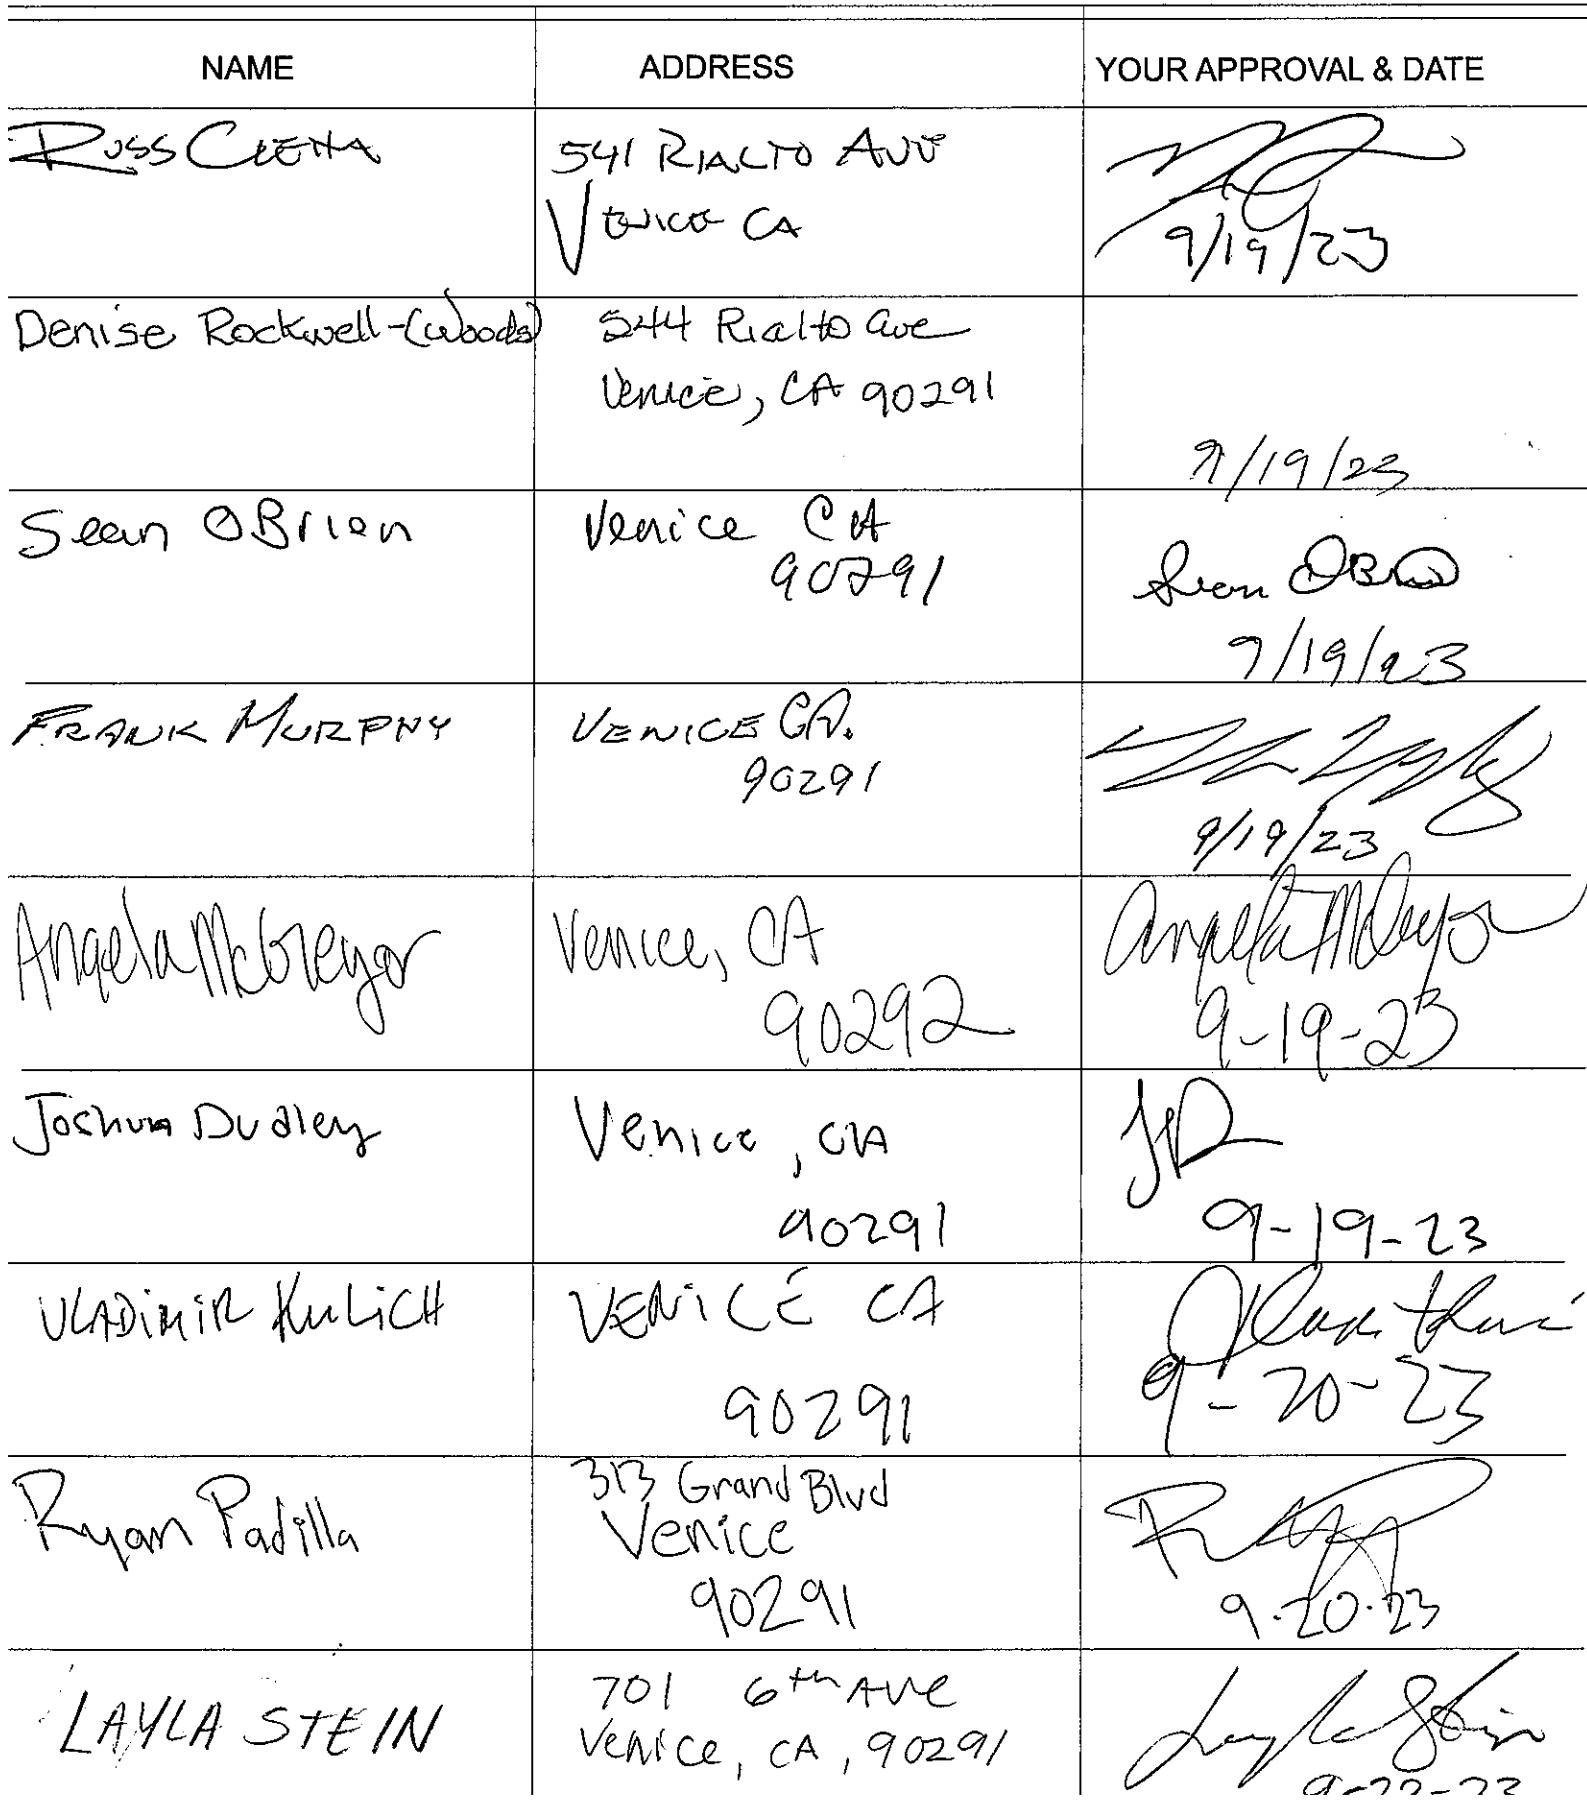 NAME ADDRESS YOUR APPROVAL & DATE
Russ 541 RIALTO AVE
VENICE CA
9/19/23
Denise Rockwell-(Woods) 544 Rialto Ave
Venice, CA 90291
9/19/23
Sean OBrien Venice CA
90291 Sean OBrien
9/19/23
FRANK MURPHY VENICE CA.
90291
9/19/23
Angela McGregor Venice, CA Angela McGregor
90292 9-19-23
Joshua Dudley Venice, CA JD
90291 9-19-23
VLADIMIR KULICH VENICE CA
90291 9-20-23
Ryan Padilla 313 Grand Blvd
Venice
90291 9.20.23
LAYLA STEIN 701 6th AVE
Venice, CA, 90291 Layla Stein
9-22-23